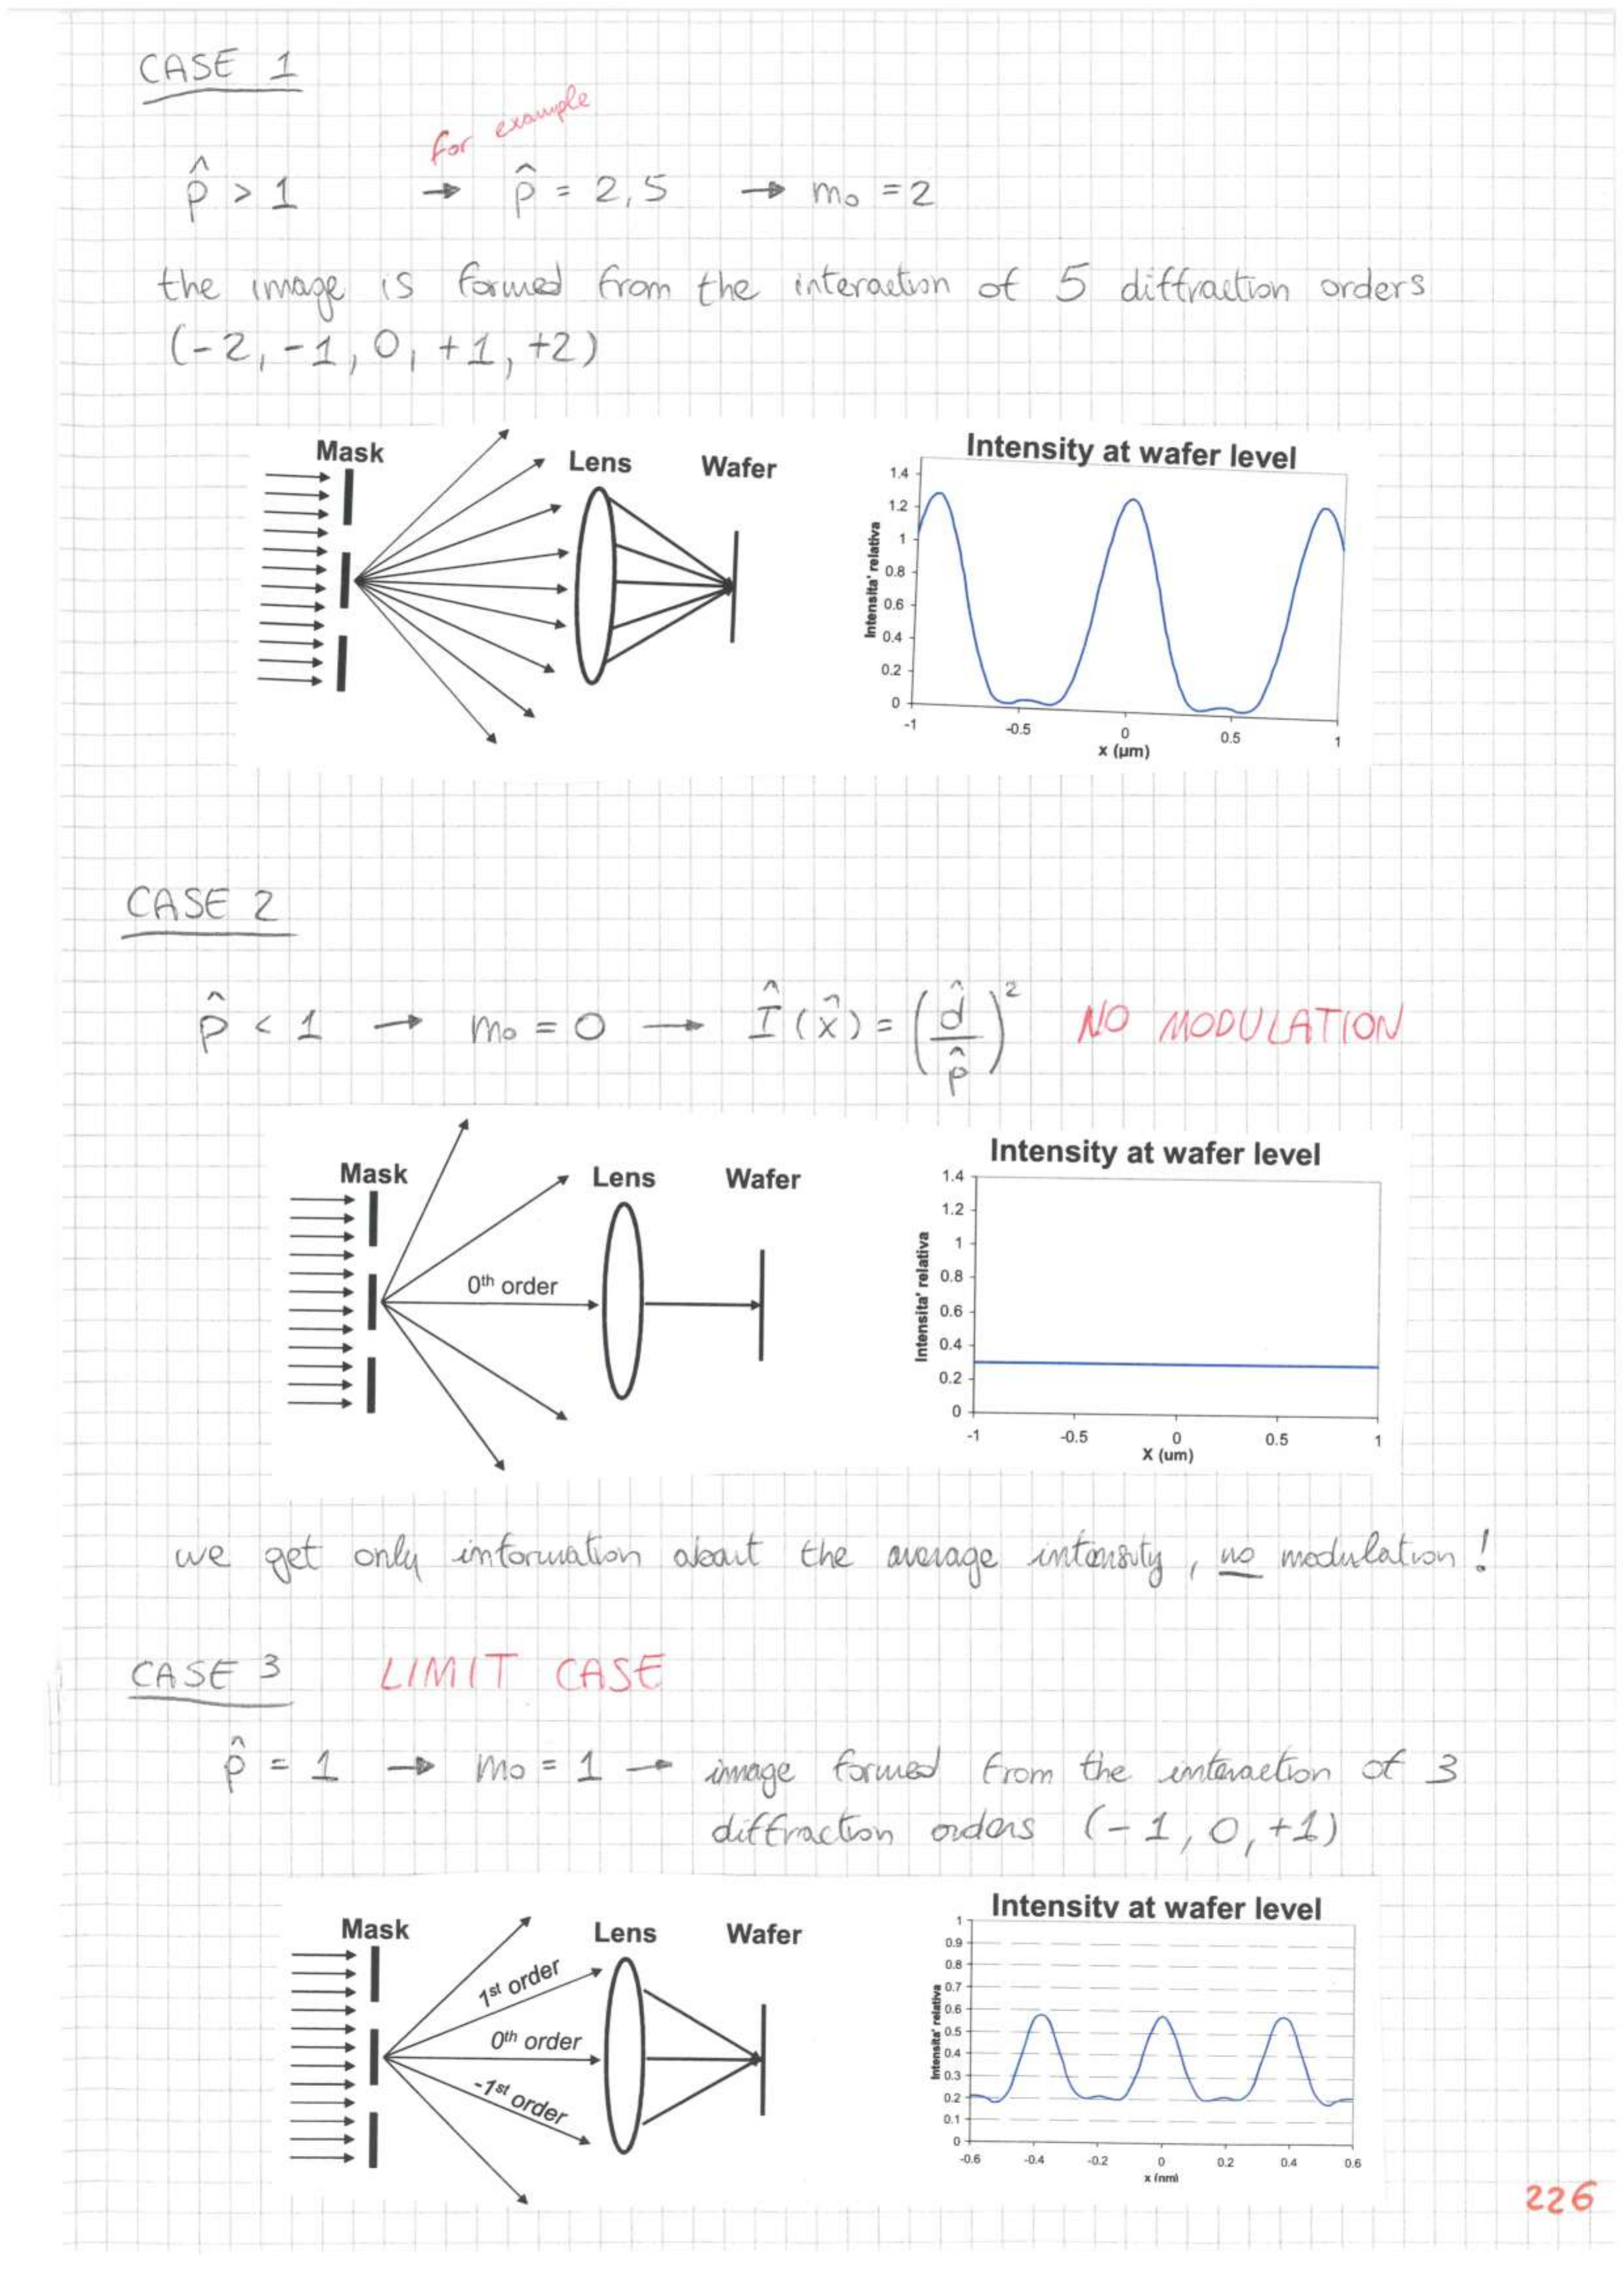 CASE 1
for example
p̂ > 1 → p̂ = 2,5 → m₀ = 2
the image is formed from the interaction of 5 diffraction orders
(-2, -1, 0, +1, +2)
Mask
Lens
Wafer
Intensity at wafer level
Intensita' relativa
1.4
1.2
1
0.8
0.6
0.4
0.2
0
-1
-0.5
0
0.5
1
x (µm)
CASE 2
p̂ < 1 → m₀ = 0 → Î(x̂) = (d̂/p̂)² NO MODULATION
Mask
Lens
Wafer
0th order
Intensity at wafer level
Intensita' relativa
1.4
1.2
1
0.8
0.6
0.4
0.2
0
-1
-0.5
0
0.5
1
X (um)
we get only information about the average intensity, no modulation!
CASE 3 LIMIT CASE
p̂ = 1 → m₀ = 1 → image formed from the interaction of 3
diffraction orders (-1, 0, +1)
Mask
Lens
Wafer
1st order
0th order
-1st order
Intensity at wafer level
Intensita' relativa
1
0.9
0.8
0.7
0.6
0.5
0.4
0.3
0.2
0.1
0
-0.6
-0.4
-0.2
0
0.2
0.4
0.6
x (nm)
226